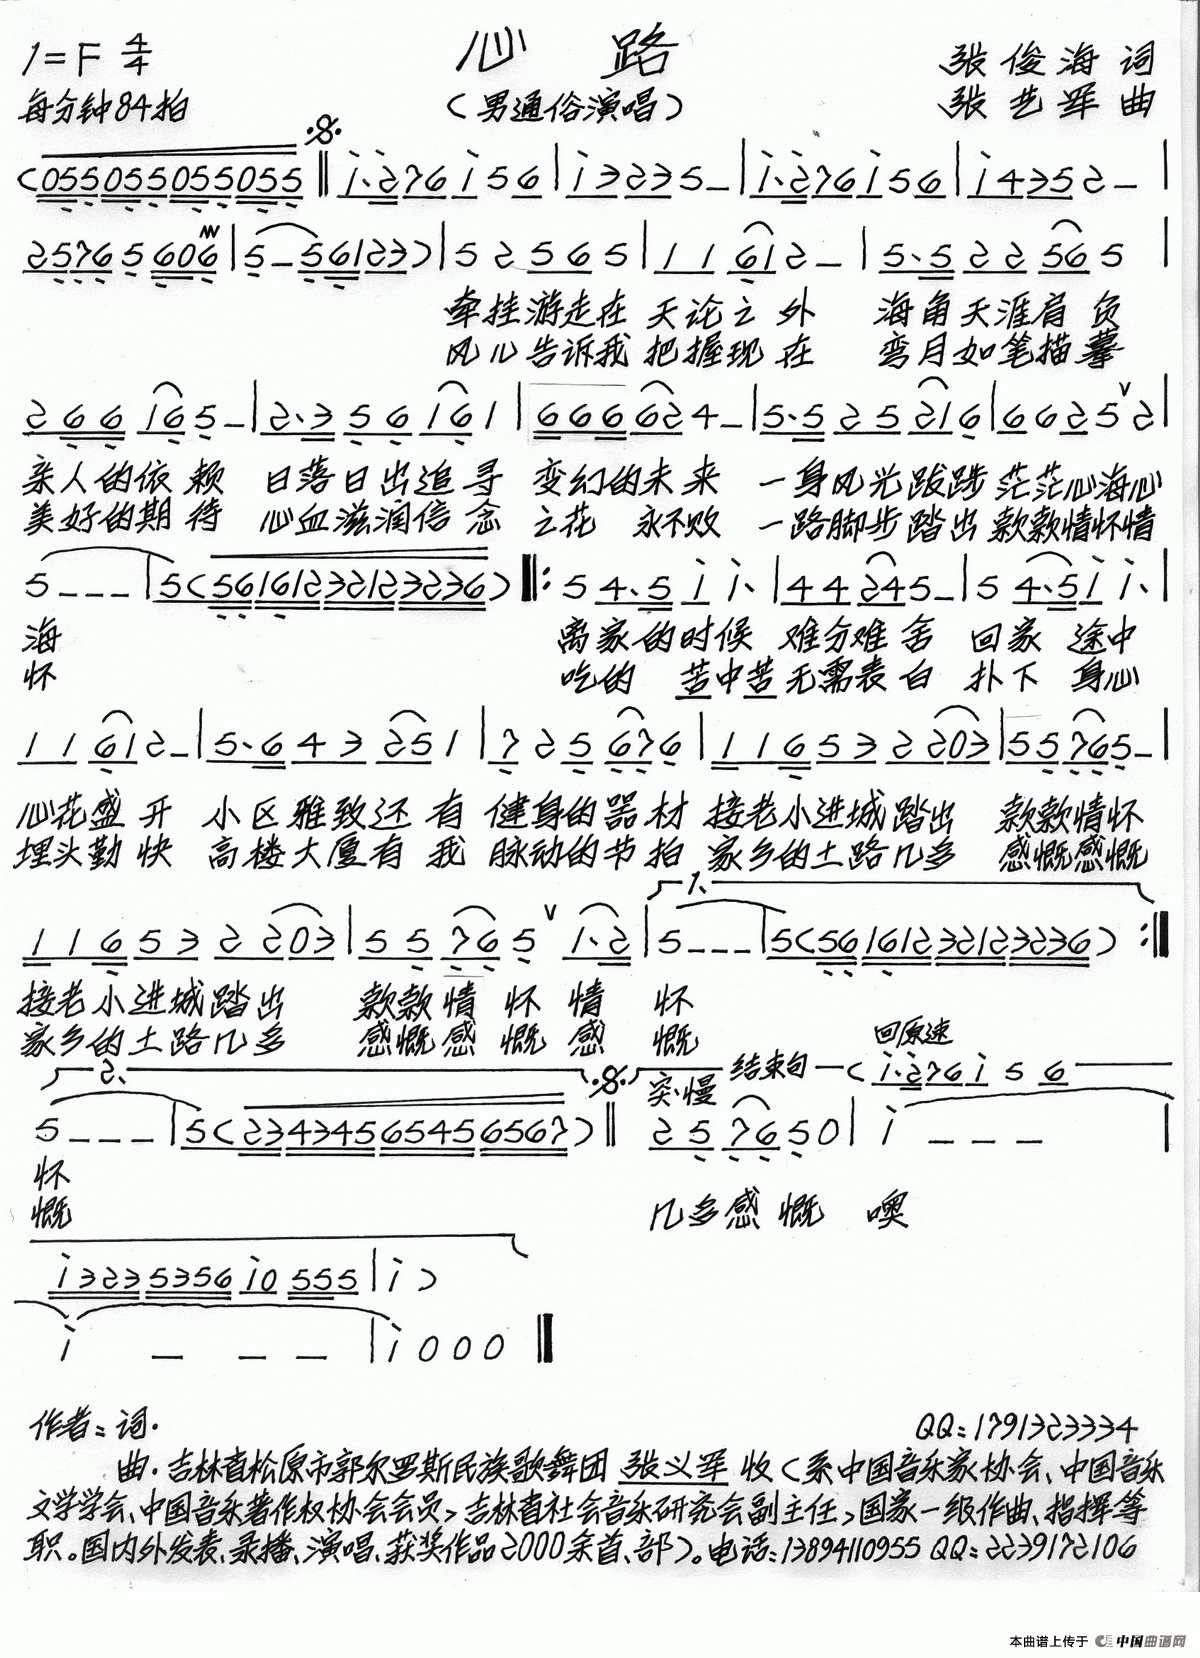 1=F 4/4
心 路
张俊海 词
每分钟84拍
(男通俗演唱)
张艺军 曲
(055055055055 ‖ i·276i56 | i3235– | i·276i56 | i4352– |
25765606 | 5–56123) | 52565 | 11612– | 5·522565 |
牵挂游走在 天论之外 海角天涯肩负
风儿告诉我 把握现在 弯月如笔描摹
266165– | 2·356161 | 666624– | 5·525216 | 6625ˇ2 |
亲人的依赖 日落日出追寻 变幻的未来 一身风光跋涉 茫茫心海心
美好的期待 心血滋润信念 之花 永不败 一路脚步踏出 款款情怀情
5––– | 5(56161232123236) ‖: 54·5ii· | 44245– | 54·5ii· |
海 离家的时候 难分难舍 回家 途中
怀 吃的 苦中苦无需表白 扑下 身心
11612– | 5·643251 | 725676 | 116532203 | 55765– |
心花盛开 小区雅致还有 健身的器材 接老小进城踏出 款款情怀
埋头勤快 高楼大厦有我 脉动的节拍 家乡的土路几多 感慨感慨
1、
116532203 | 55765ˇ1·2 | 5––– | 5(56161232123236) :‖
接老小进城踏出 款款情怀情 怀
家乡的土路几多 感慨感慨感 慨
回原速
2、 突慢 结束句 (i·276i56
5––– | 5(23434565456567) ‖ 257650 | i – – –
怀
慨 几多感慨 噢
i3235356i0555 | i)
i – – – | i000 ‖
作者:词·
QQ:1791323334
曲·吉林省松原市郭尔罗斯民族歌舞团 张义军 收(系中国音乐家协会、中国音乐
文学学会、中国音乐著作权协会会员,吉林省社会音乐研究会副主任,国家一级作曲、指挥等
职。国内外发表、录播、演唱、获奖作品2000余首、部)。电话:13894110955 QQ:2239172106
本曲谱上传于 中国曲谱网